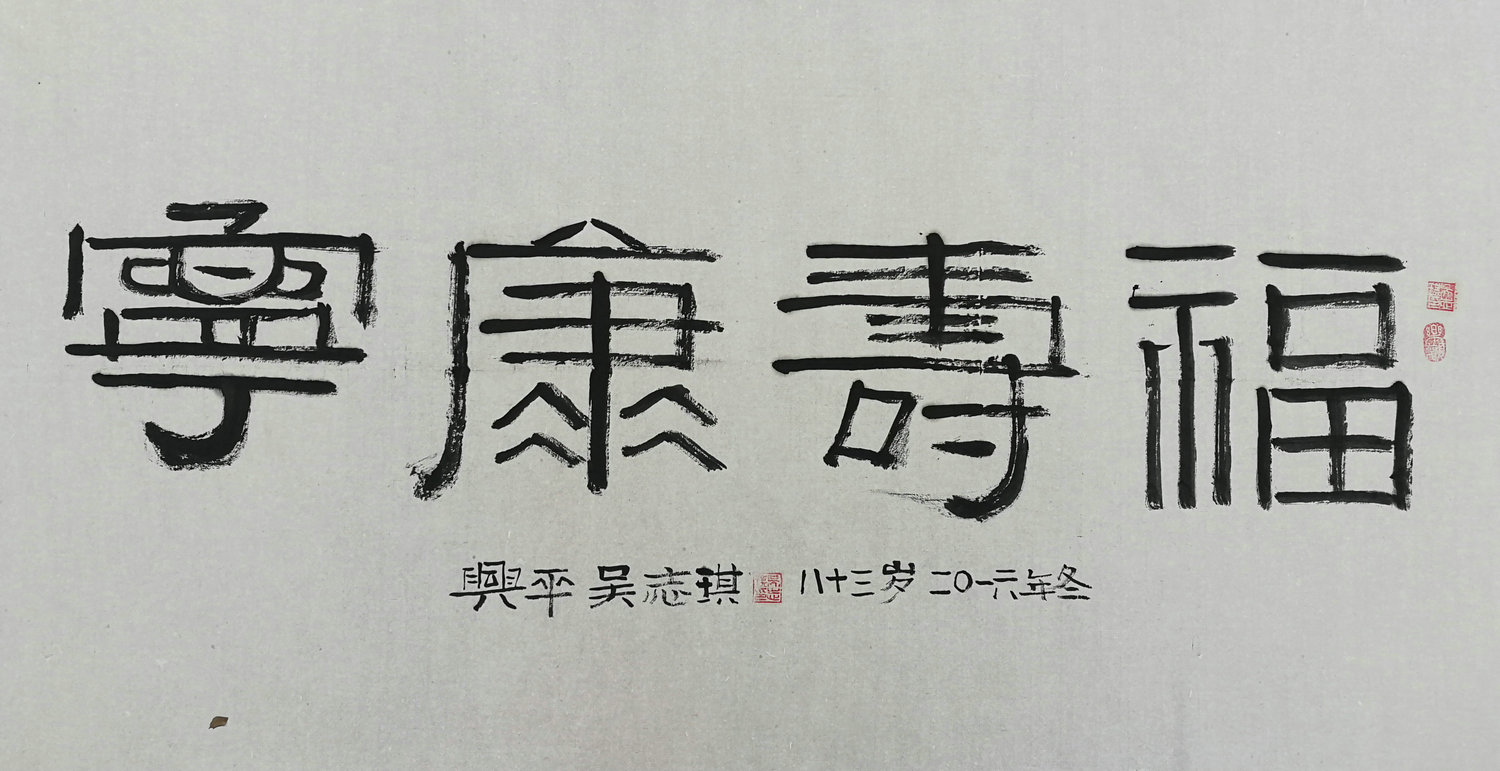 福壽康寧
興平 吴志琪 八十三岁 二〇一六年冬